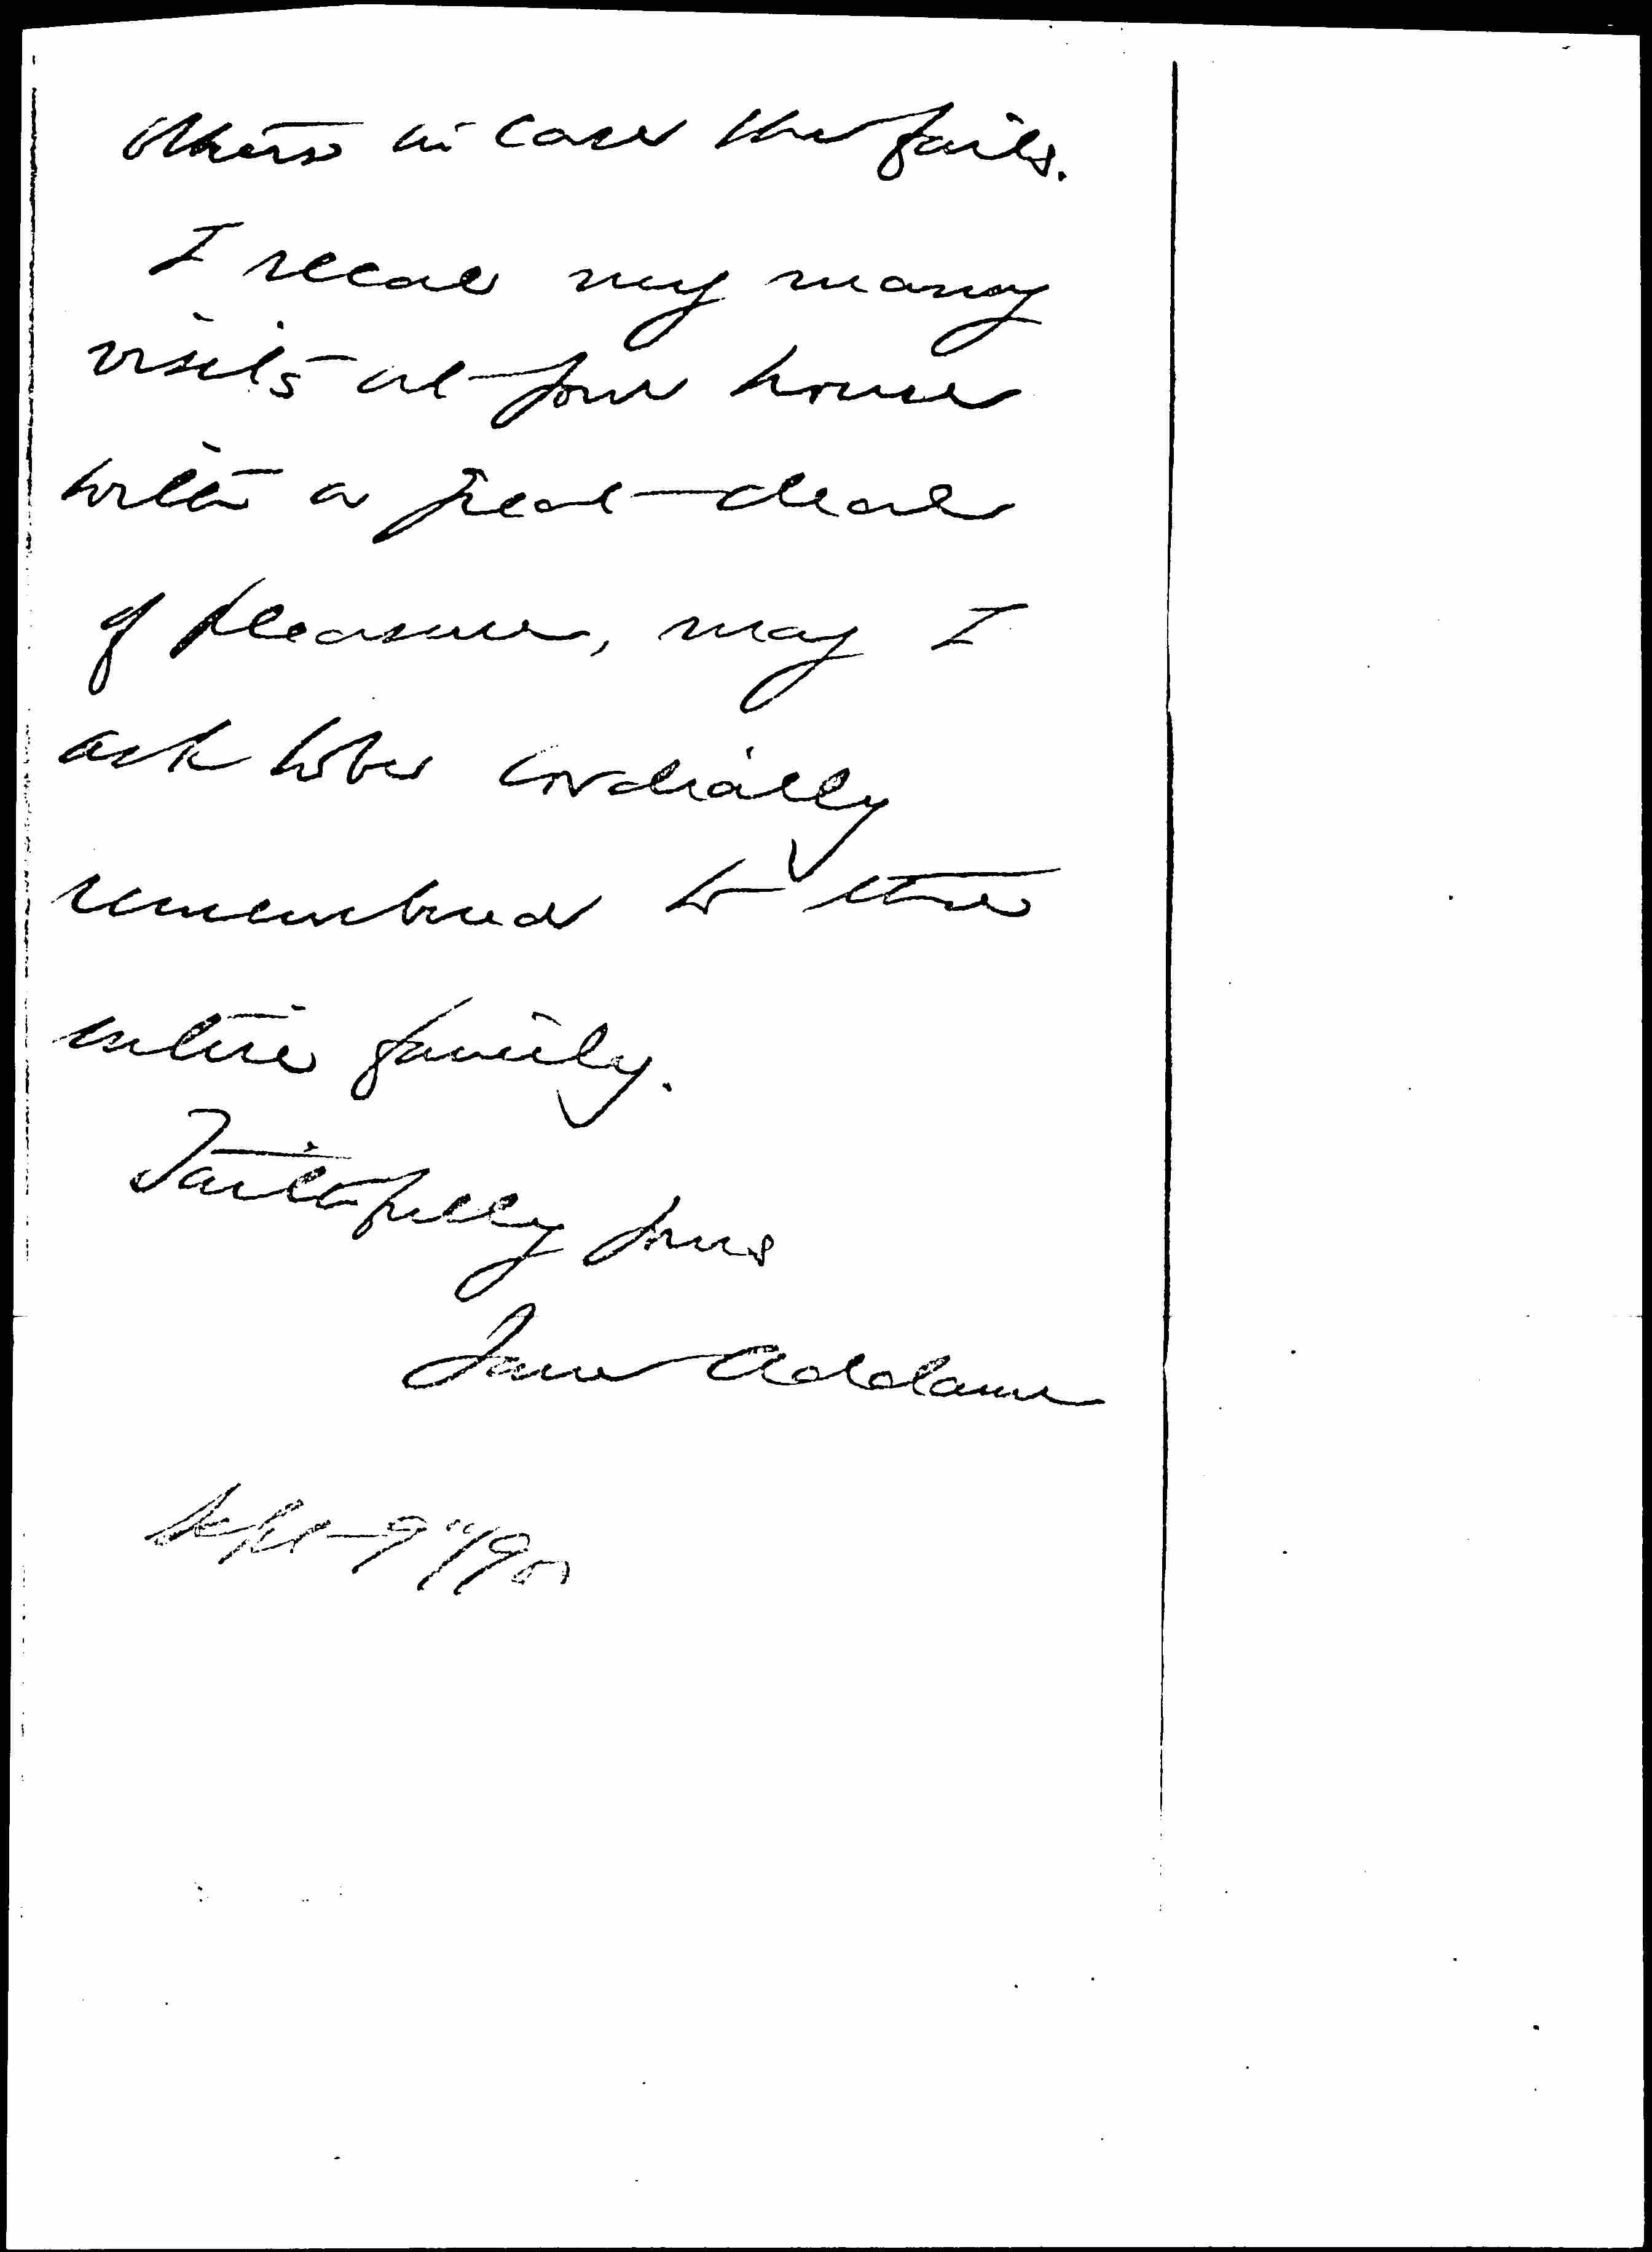 others in case this fails.
I recall my many
visits at your house
with a great deal
of pleasure, may I
ask to be cordially
remembered to the
entire family.
Faithfully yours
Jane Addams
Sept 9"